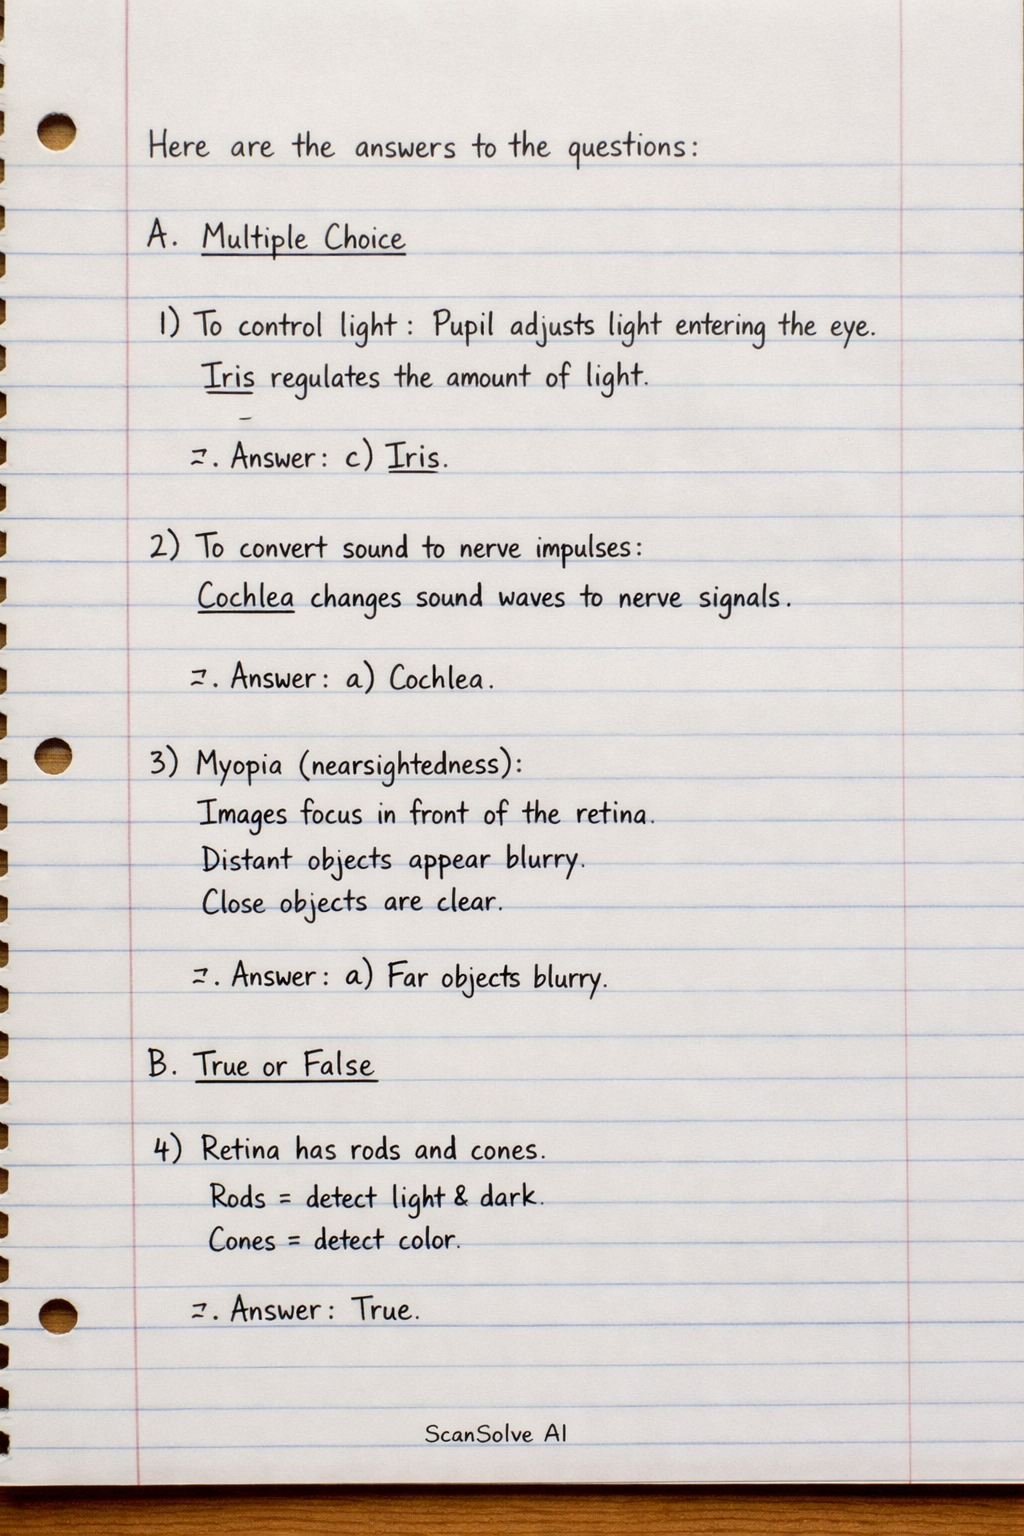 Here are the answers to the questions:
A. Multiple Choice
1) To control light: Pupil adjusts light entering the eye.
Iris regulates the amount of light.
Answer: c) Iris.
2) To convert sound to nerve impulses:
Cochlea changes sound waves to nerve signals.
Answer: a) Cochlea.
3) Myopia (nearsightedness):
Images focus in front of the retina.
Distant objects appear blurry.
Close objects are clear.
Answer: a) Far objects blurry.
B. True or False
4) Retina has rods and cones.
Rods = detect light & dark.
Cones = detect color.
Answer: True.
ScanSolve AI